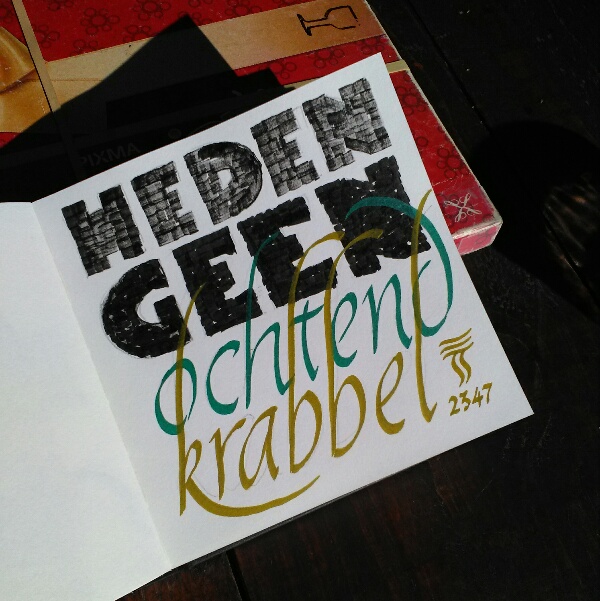 PIXMA
HEDEN
GEEN
ochtend
krabbel
2347